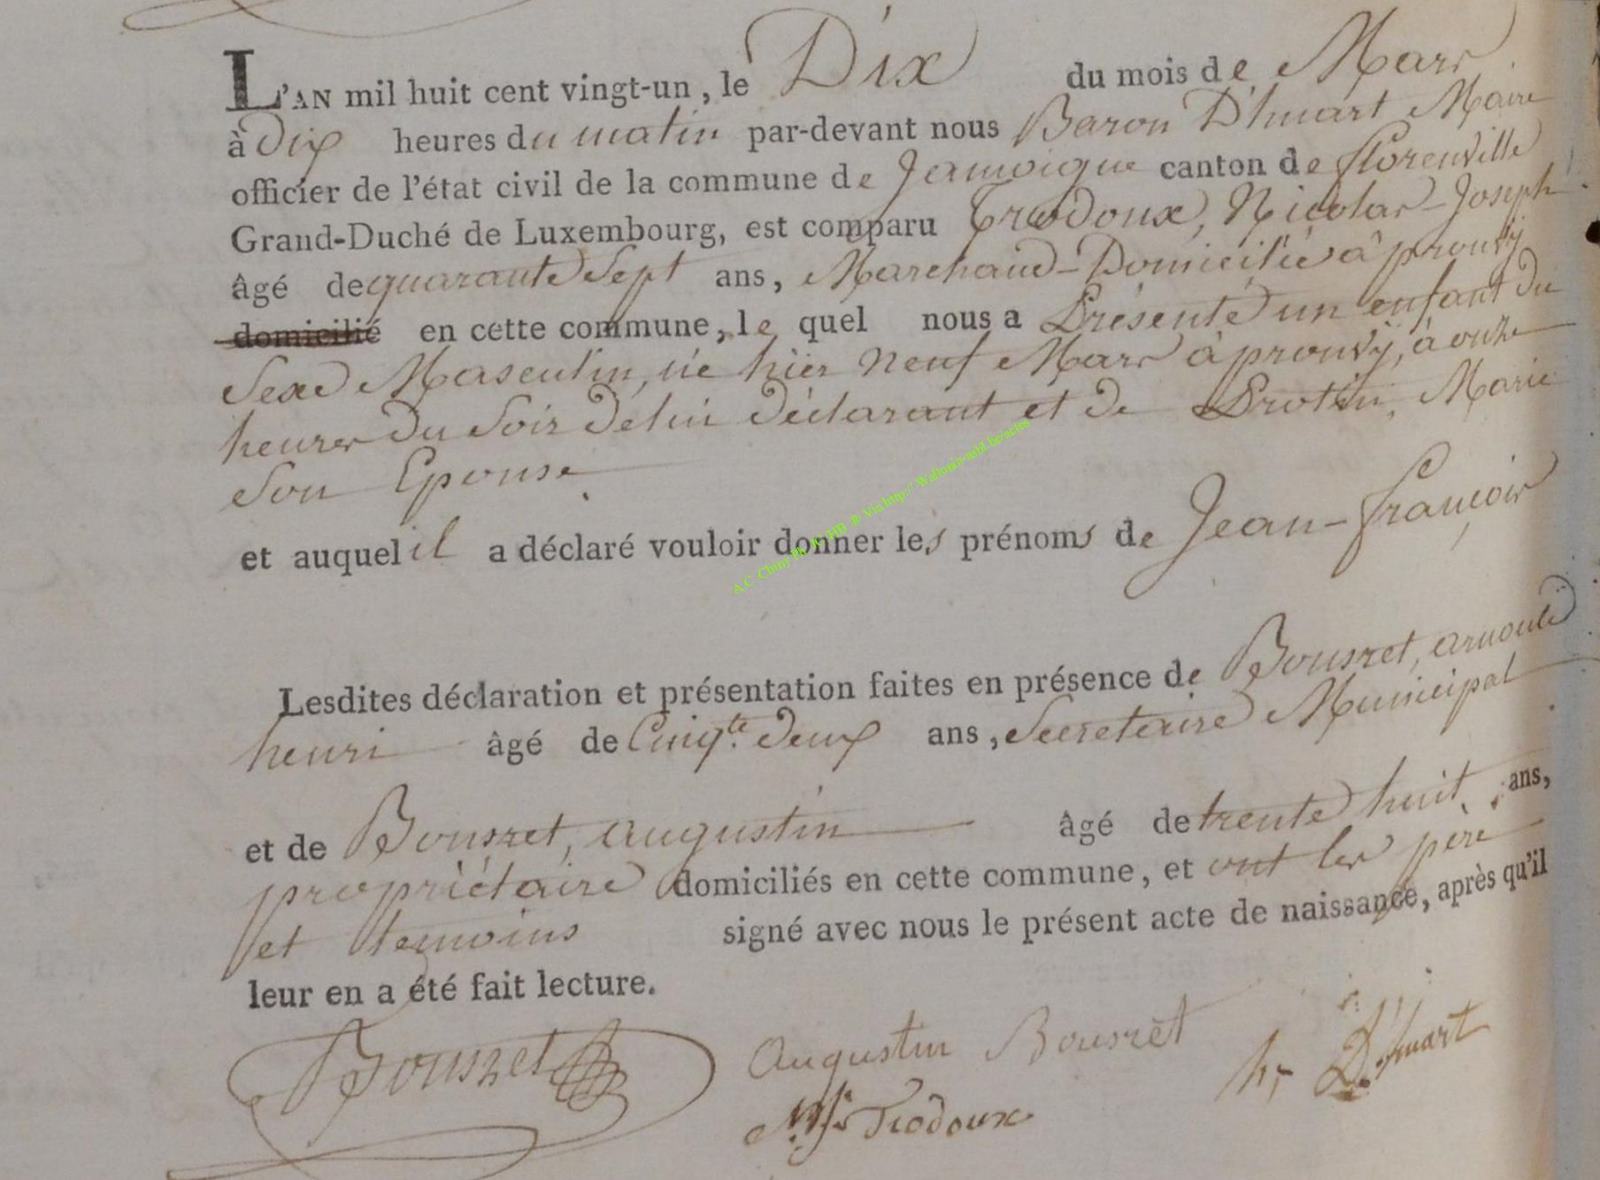 L'AN mil huit cent vingt-un, le Dix du mois de Mars
à dix heures du matin par-devant nous Baron D'huart Maire
officier de l'état civil de la commune de Jamoigne canton de florenville
Grand-Duché de Luxembourg, est comparu Trodoux, Nicolas-Joseph
âgé de quarante Sept ans, Marchand-Domicilié à prouvÿ
domicilié en cette commune, le quel nous a Présenté un enfant du
Sexe Masculin, né hier neuf Mars à prouvÿ, à onze
heures du Soir de lui déclarant et de Protin, Marie
Son Epouse
et auquel il a déclaré vouloir donner les prénoms de Jean-françois
Lesdites déclaration et présentation faites en présence de Bousret, arnould
henri âgé de Cinqte. deux ans, Secretaire Municipal
et de Bousret, augustin âgé de trente huit ans,
propriétaire domiciliés en cette commune, et ont les père
et temoins signé avec nous le présent acte de naissance, après qu'il
leur en a été fait lecture.
Bousret
Augustin Bousret
D'huart
Trodoux